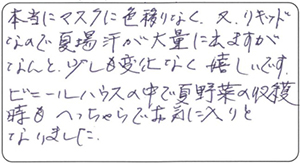 本当にマスクに色移りなく、又、リキッド
なので夏場汗が大量に出ますが
なんと、少しも変化なく嬉しいです。
ビニールハウスの中で夏野菜の収穫
時も へっちゃらでお気に入りと
なりました。